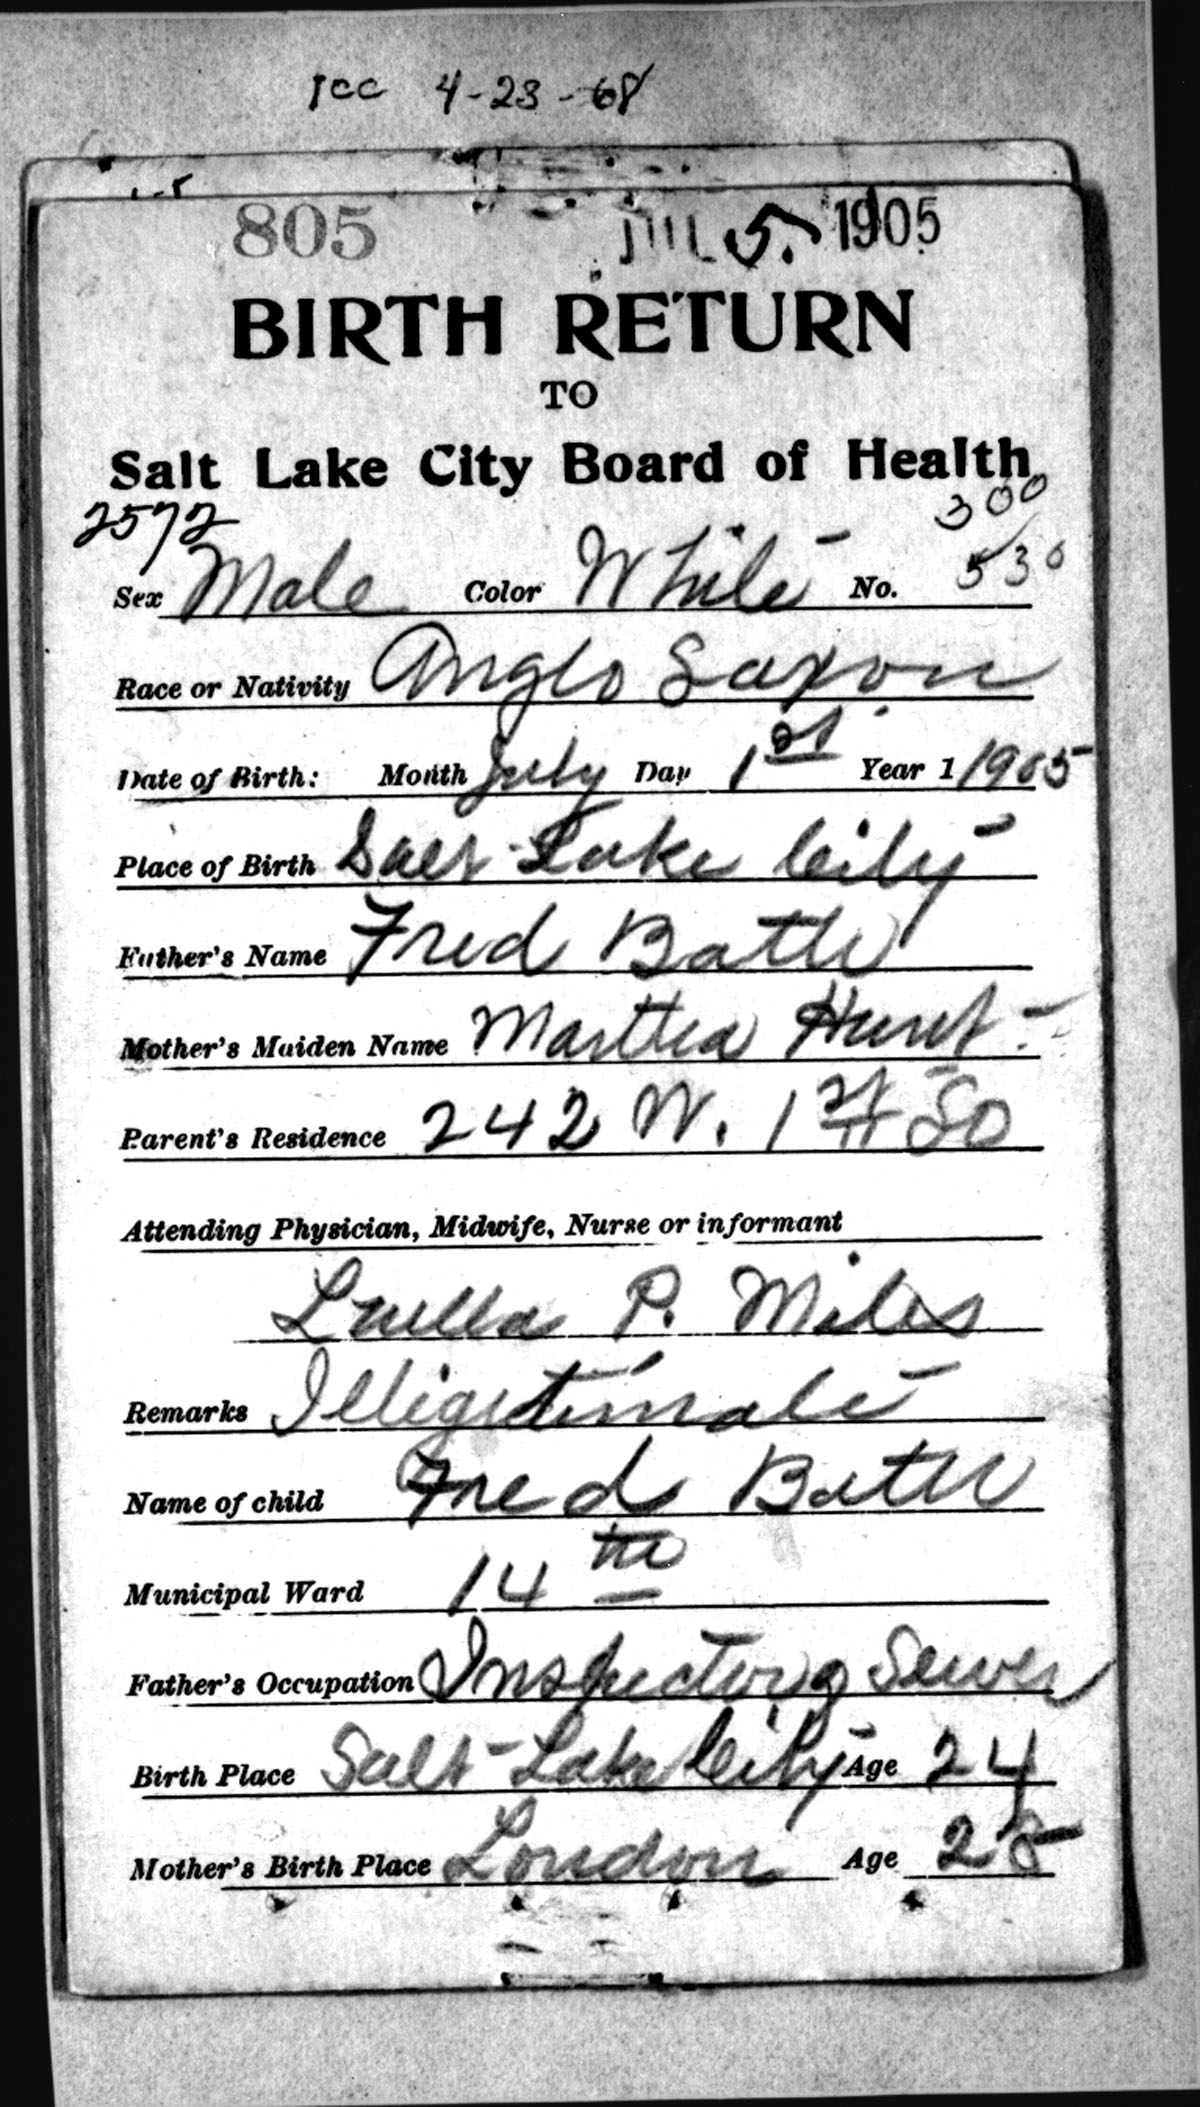 1cc 4-23-68
805 JUL 5. 1905
BIRTH RETURN
TO
Salt Lake City Board of Health
2572 300
Sex Male Color White No. 530
Race or Nativity Anglo Saxon
Date of Birth: Month July Day 1st Year 1 1905
Place of Birth Salt Lake City
Father's Name Fred Bath
Mother's Maiden Name Martha Hurst
Parent's Residence 242 W. 1st So
Attending Physician, Midwife, Nurse or informant
Luella P. Miles
Remarks Illigitimate
Name of child Fred Bath
Municipal Ward 14th
Father's Occupation Inspectorg Sewer
Birth Place Salt Lake City Age 24
Mother's Birth Place London Age